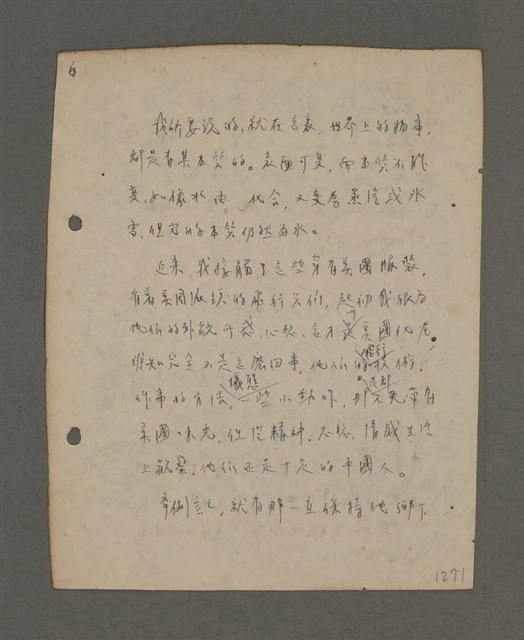 6
我所要說的，就在言表，世界上的物事，
都是有其本質的。表面可變，而本質不能
變，如像水由　化合，又变為蒸汽或冰
雪，但它的本質仍然为水。
近来，我接觸了这些穿有美國服裝，
有着美國派頭的飛行员们，起初我很为
他们的外貌所惑，心想，这才是美國化咧，
谁知完全不是这麼回事，他们的飛行技術，
作事的方法，儀態 一些小動作，那都是帶有
美國味兒，但從精神、思想、情感生活
上觀察，他们还是十足的中國人。
舉例言之，就有那一直保持他鄉下
1271